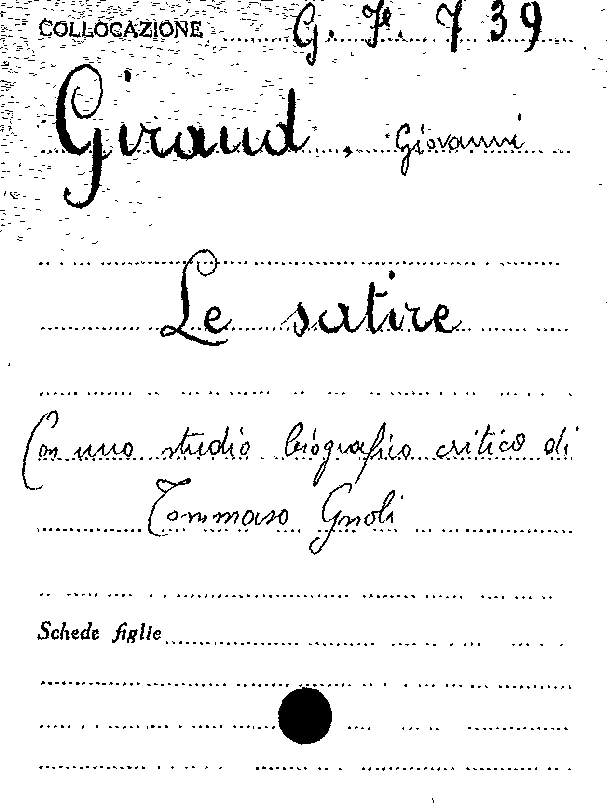 COLLOCAZIONE G. F. 739
Giraud, Giovanni
Le satire
Con uno studio biografico critico di
Tommaso Gnoli
Schede figlie